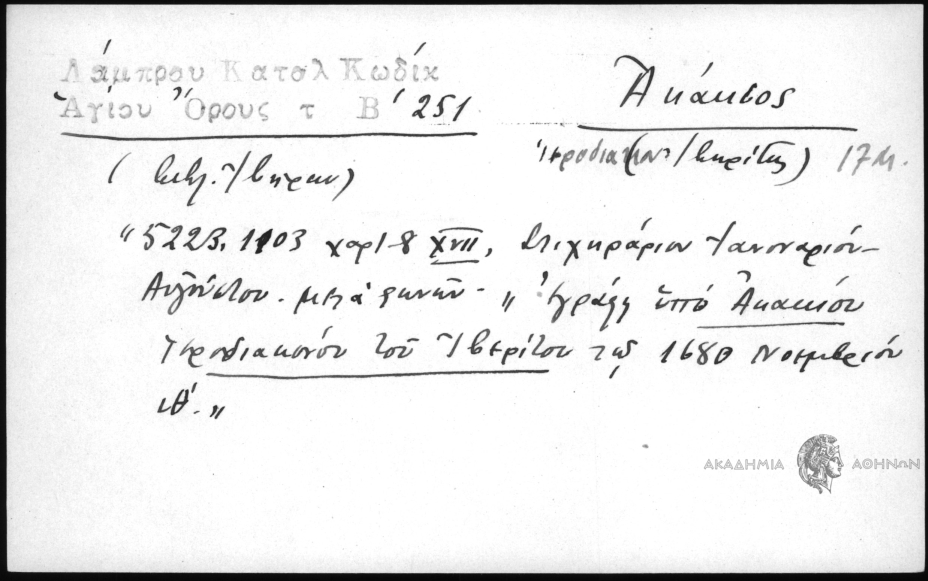 Λάμπρου Καταλ Κωδίκ
Ἁγίου Ὄρους τ Β΄ 251
Ἀκάκιος
ἱεροδιάκον (Ἰβηρίτης) 17 αι.
(Βιβλ. Ἰβήρων)
"5223. 1103 χαρτ 8 XVII, Στιχηράριον Ἰανουαρίου-
Αὐγούστου. μετὰ φωνῶν. "Ἐγράφη ὑπό Ἀκακίου
Ἱεροδιακόνου τοῦ Ἰβηρίτου τῷ 1680 Νοεμβρίου
ιθ΄."
ΑΚΑΔΗΜΙΑ ΑΘΗΝΩΝ